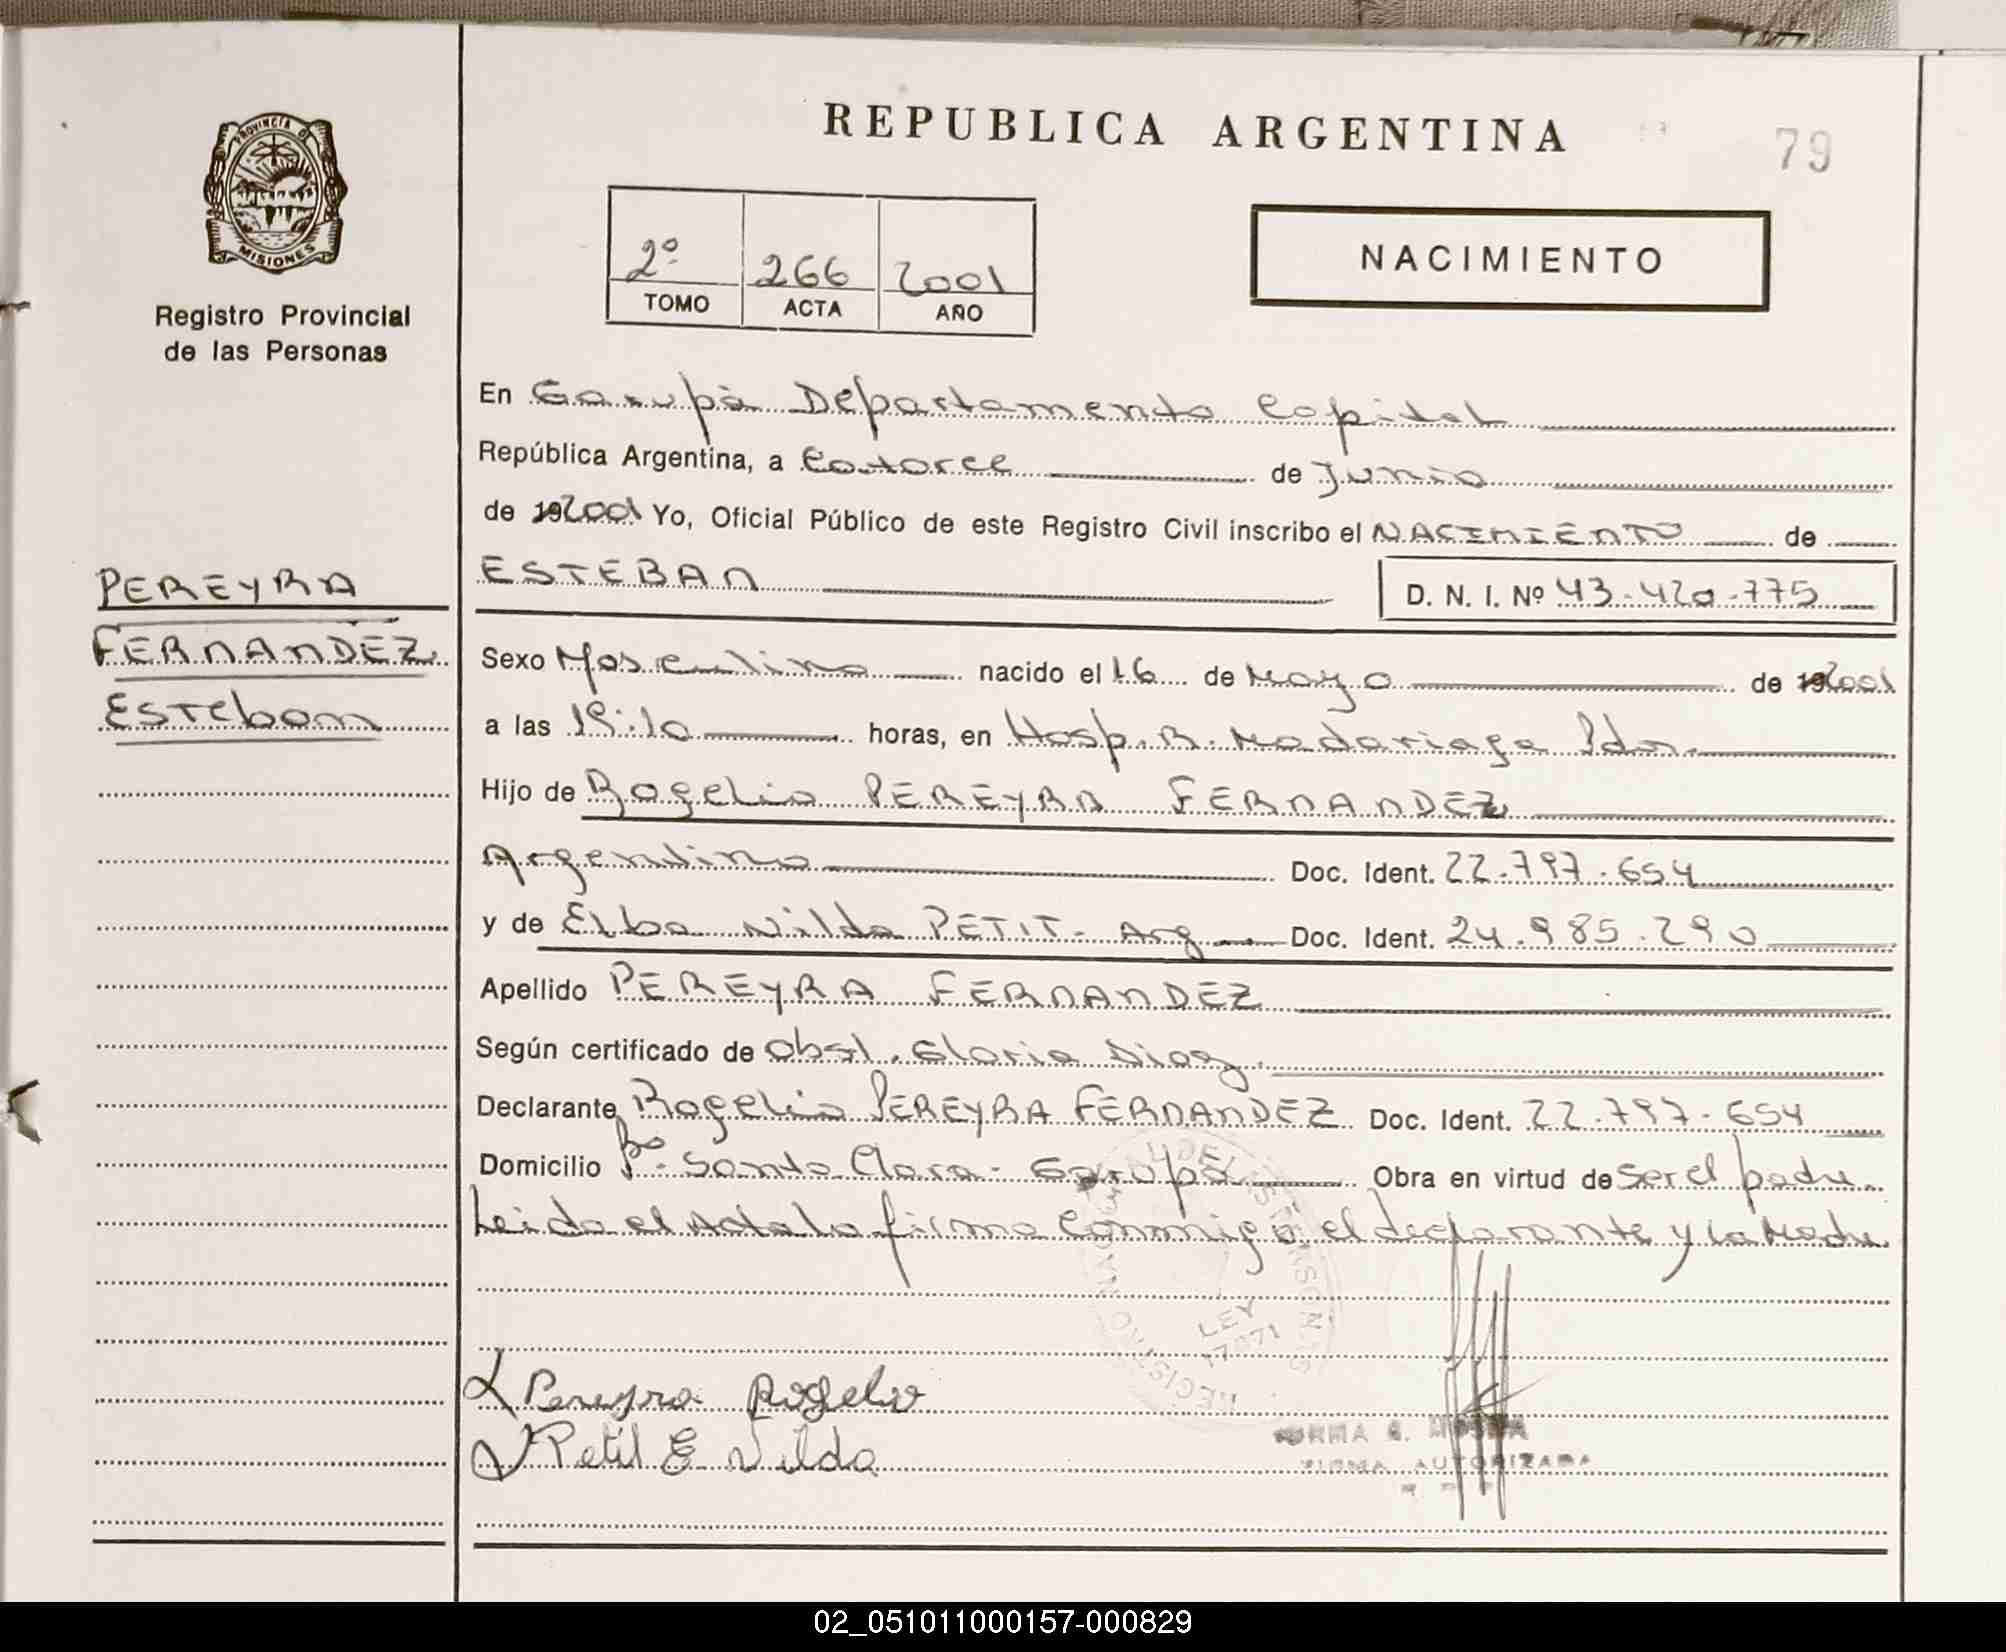 REPUBLICA ARGENTINA
79
PROVINCIA DE
MISIONES
Registro Provincial
de las Personas
2º 266 2001
TOMO ACTA AÑO
NACIMIENTO
En Garupá Departamento Capital
República Argentina, a Catorce de Junio
de 192001 Yo, Oficial Público de este Registro Civil inscribo el NACIMIENTO de
ESTEBAN D. N. I. Nº 43.420.775
PEREYRA
FERNANDEZ
Esteban
Sexo Masculino nacido el 16 de Mayo de 192001
a las horas, en Hosp. R. Madariaga Pdas.
Hijo de Rogelio PEREYRA FERNANDEZ
Argentino Doc. Ident. 22.797.654
y de Elba Nilda PETIT - Arg Doc. Ident. 24.985.290
Apellido PEREYRA FERNANDEZ
Según certificado de Obst. Gloria Diaz.
Declarante Rogelio PEREYRA FERNANDEZ Doc. Ident. 22.797.654
Domicilio Bº. Santa Clara - Garupá Obra en virtud de ser el padre
Leida el Acta la firma conmigo el declarante y la Madre
LEY
17671
Pereyra Rogelio
Petit E Nilda
FIRMA AUTORIZADA
02_051011000157-000829